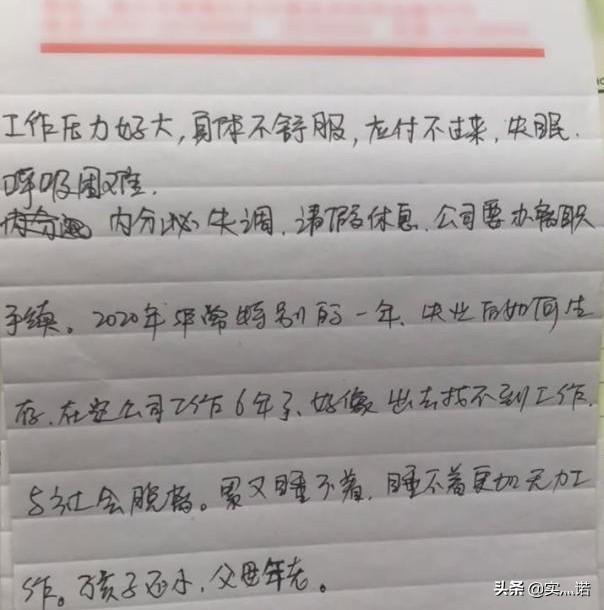 工作压力好大,身体不舒服,应付不过来,失眠.
呼吸困难.
内分泌失调.请假休息.公司要办离职
手续。2020年非常特别的一年、失业后如何生
存.在这公司工作6年了、好像出去找不到工作.
与社会脱离。累又睡不着.睡不着更加无力工
作。孩子还小.父母年老。
头条 @实灬诺